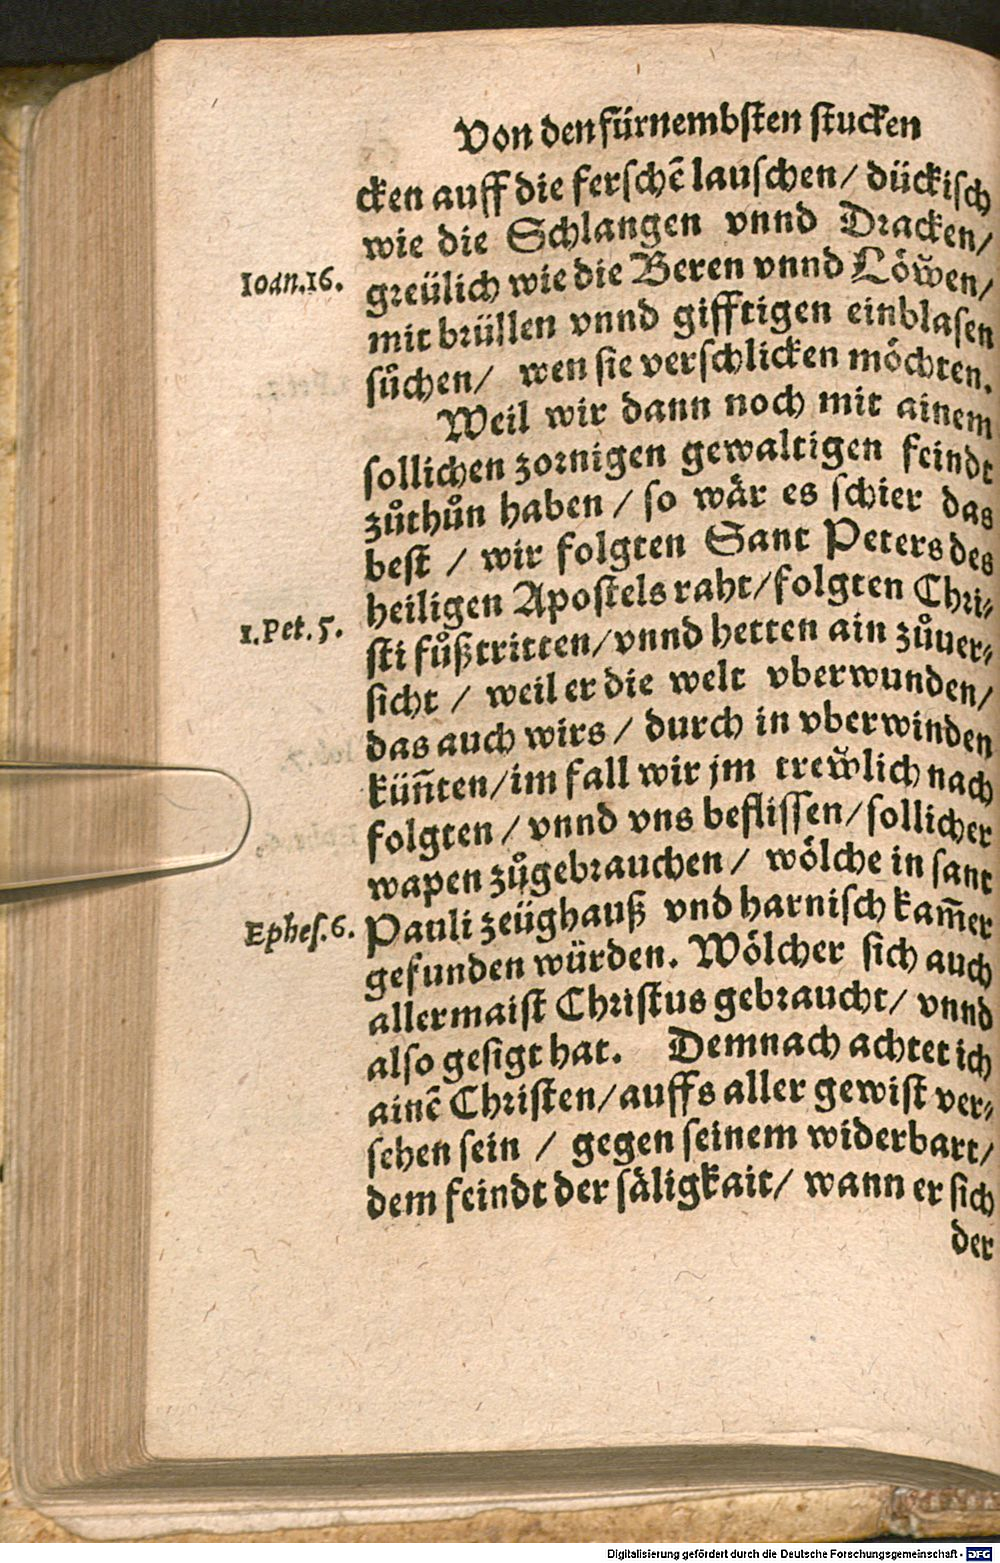 Von den fürnembsten stucken
cken auff die ferschē lauschen/ dückisch
wie die Schlangen vnnd Dracken/
Ioan.16.
greülich wie die Beren vnnd Löwen/
mit brüllen vnnd gifftigen einblasen
sůchen/ wen sie verschlicken möchten.
Weil wir dann noch mit ainem
sollichen zornigen gewaltigen feindt
zůthůn haben / so wår es schier das
best / wir folgten Sant Peters des
heiligen Apostels raht/folgten Chri-
1.Pet.5.
sti fůßtritten/vnnd hetten ain zůuer-
sicht / weil er die welt vberwunden/
das auch wirs / durch in vberwinden
küñten/im fall wir jm trewlich nach
folgten / vnnd vns beflissen/sollicher
wapen zůgebrauchen / wölche in sant
Ephes.6.
Pauli zeüghauß vnd harnisch kam̄er
gefunden würden. Wölcher sich auch
allermaist Christus gebraucht/ vnnd
also gesigt hat. Demnach achtet ich
ainē Christen/auffs aller gewist ver-
sehen sein / gegen seinem widerbart/
dem feindt der såligkait/ wann er sich
der
Digitalisierung gefördert durch die Deutsche Forschungsgemeinschaft - DFG